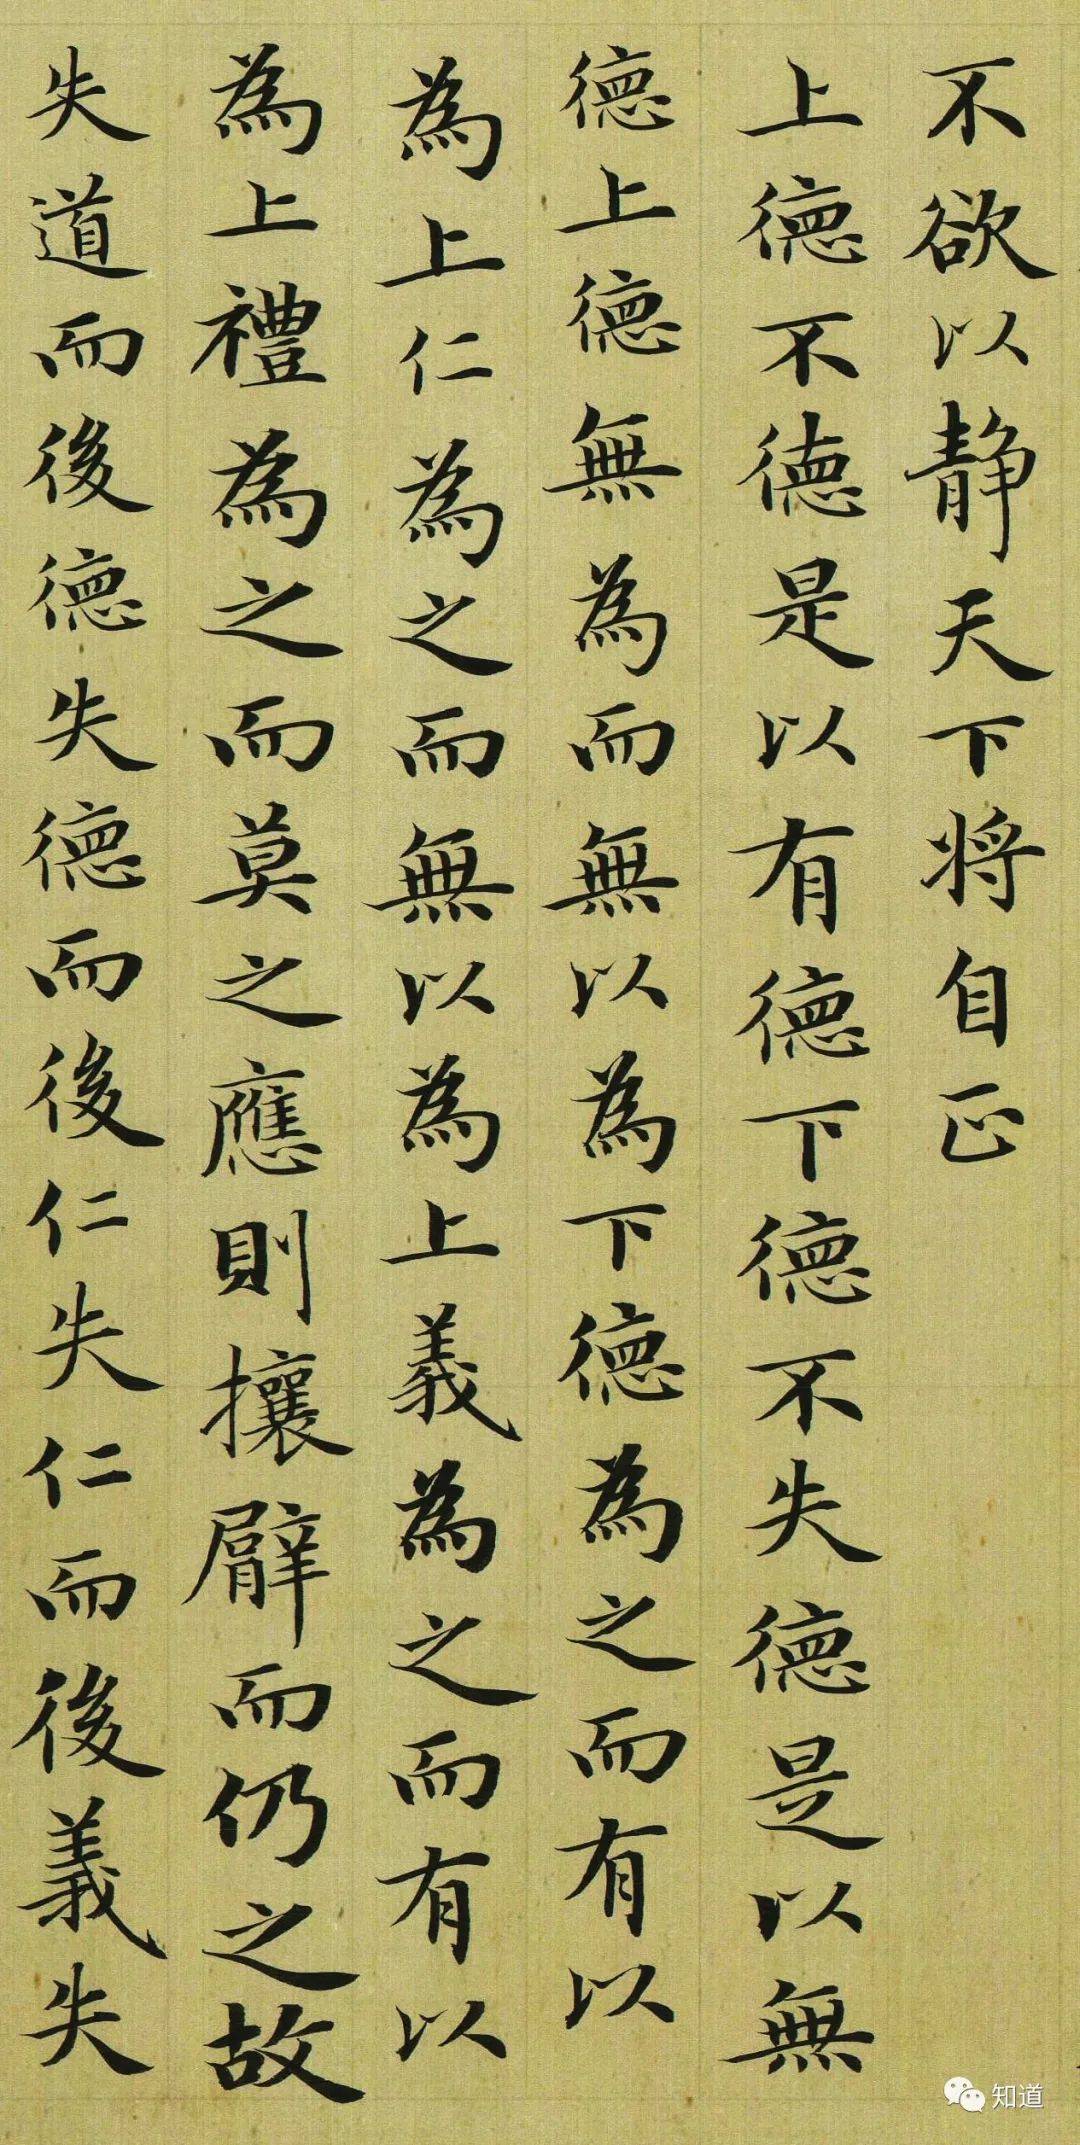 不欲以静天下将自正
上德不德是以有德下德不失德是以無
德上德無為而無以為下德為之而有以
為上仁為之而無以為上義為之而有以
為上禮為之而莫之應則攘臂而仍之故
失道而後德失德而後仁失仁而後義失
知道